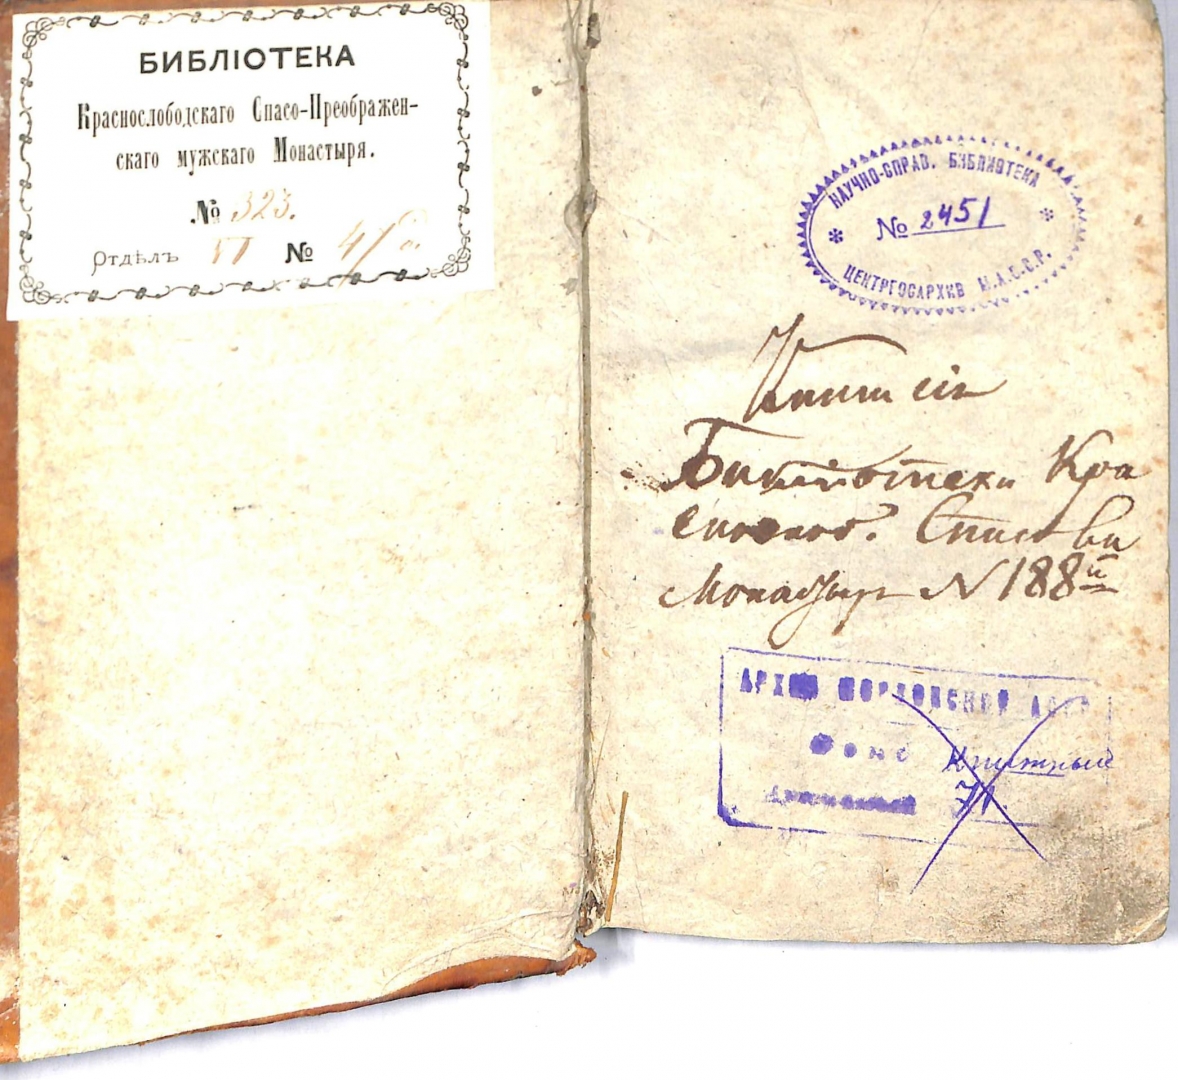 БИБЛІОТЕКА
Краснослободскаго Спасо-Преображен-
скаго мужскаго Монастыря.
№ 323.
Отдѣлъ VI №
НАУЧНО-СПРАВ. БИБЛИОТЕКА
№ 2451
ЦЕНТРГОСАРХИВ М.А.С.С.Р.
Книга сія
Библіотеки Кра
Спасова
Монастыр N 188й
АРХИВ МОРДОВСКОЙ АССР
Фонд
71.